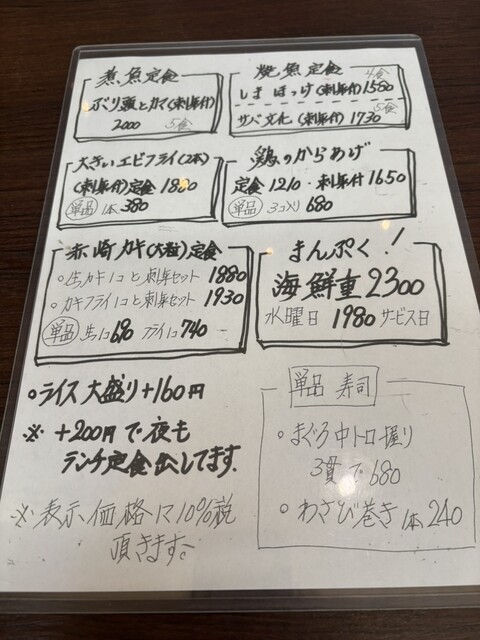 煮魚定食
ぶり頭とカマ(刺身付)
2000 5食
焼魚定食 4食
しまほっけ(刺身付)1580
5食
サバ文化(刺身付)1730
大きいエビフライ(2本)
(刺身付)定食 1880
単品 1本380
鶏のからあげ
定食1210・刺身付1650
単品 3コ入り680
赤崎カキ(大粒)定食
○生カキ1コと刺身セット 1880
○カキフライ1コと刺身セット 1930
単品 生1コ690 フライ1コ740
まんぷく!
海鮮重2300
水曜日 1980 サービス日
○ライス大盛り+160円
※ +200円で夜も
ランチ定食出してます。
※表示価格に10%税
頂きます。
単品 寿司
○まぐろ中トロ握り
3貫で680
○わさび巻き1本240